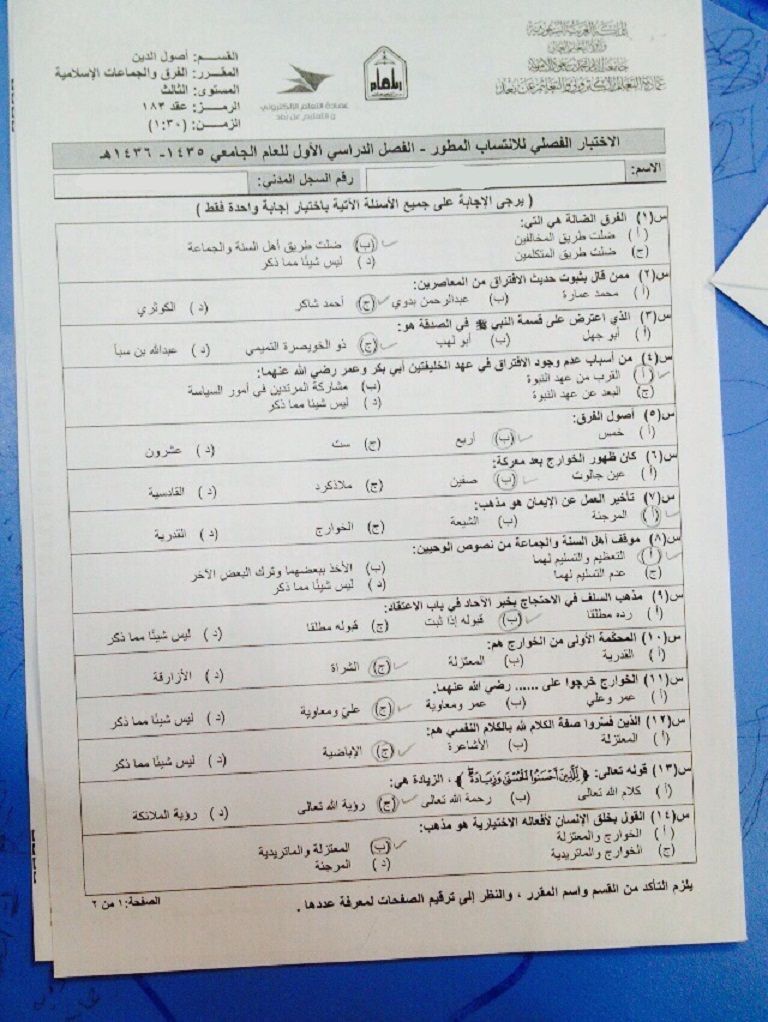 المملكة العربية السعودية
وزارة التعليم العالي
جامعة الإمام محمد بن سعود الإسلامية
عمادة التعليم الإلكتروني والتعليم عن بعد
عمادة التعلم الإلكتروني
والتعليم عن بعد
القسم: أصول الدين
المقرر: الفرق والجماعات الإسلامية
المستوى: الثالث
الرمز: عقد ١٨٣
الزمن: (١:٣٠)
الاختبار الفصلي للانتساب المطور - الفصل الدراسي الأول للعام الجامعي ١٤٣٥- ١٤٣٦هـ
الاسم: رقم السجل المدني:
( يرجى الإجابة على جميع الأسئلة الآتية باختيار إجابة واحدة فقط )
س(١) الفرق الضالة هي التي:
(أ) ضلت طريق المخالفين (ب) ضلت طريق أهل السنة والجماعة
(ج) ضلت طريق المتكلمين (د) ليس شيئًا مما ذكر
س(٢) ممن قال بثبوت حديث الافتراق من المعاصرين:
(أ) محمد عمارة (ب) عبدالرحمن بدوي (ج) أحمد شاكر (د) الكوثري
س(٣) الذي اعترض على قسمة النبي ﷺ في الصدقة هو:
(أ) أبو جهل (ب) أبو لهب (ج) ذو الخويصرة التميمي (د) عبدالله بن سبأ
س(٤) من أسباب عدم وجود الافتراق في عهد الخليفتين أبي بكر وعمر رضي الله عنهما:
(أ) القرب من عهد النبوة (ب) مشاركة المرتدين في أمور السياسة
(ج) البعد عن عهد النبوة (د) ليس شيئًا مما ذكر
س(٥) أصول الفرق:
(أ) خمس (ب) أربع (ج) ست (د) عشرون
س(٦) كان ظهور الخوارج بعد معركة:
(أ) عين جالوت (ب) صفين (ج) ملاذكرد (د) القادسية
س(٧) تأخير العمل عن الإيمان هو مذهب:
(أ) المرجئة (ب) الشيعة (ج) الخوارج (د) القدرية
س(٨) موقف أهل السنة والجماعة من نصوص الوحيين:
(أ) التعظيم والتسليم لهما (ب) الأخذ ببعضهما وترك البعض الآخر
(ج) عدم التسليم لهما (د) ليس شيئًا مما ذكر
س(٩) مذهب السلف في الاحتجاج بخبر الآحاد في باب الاعتقاد:
(أ) رده مطلقًا (ب) قبوله إذا ثبت (ج) قبوله مطلقا (د) ليس شيئًا مما ذكر
س(١٠) المحكّمة الأولى من الخوارج هم:
(أ) القدرية (ب) المعتزلة (ج) الشراة (د) الأزارقة
س(١١) الخوارج خرجوا على ...... رضي الله عنهما.
(أ) عمر وعلي (ب) عمر ومعاوية (ج) عليّ ومعاوية (د) ليس شيئًا مما ذكر
س(١٢) الذين فسّروا صفة الكلام لله بالكلام النفسي هم:
(أ) المعتزلة (ب) الأشاعرة (ج) الإباضية (د) ليس شيئًا مما ذكر
س(١٣) قوله تعالى: ﴿لِّلَّذِينَ أَحْسَنُوا الْحُسْنَىٰ وَزِيَادَةٌ﴾، الزيادة هي:
(أ) كلام الله تعالى (ب) رحمة الله تعالى (ج) رؤية الله تعالى (د) رؤية الملائكة
س(١٤) القول بخلق الإنسان لأفعاله الاختيارية هو مذهب:
(أ) الخوارج والمعتزلة (ب) المعتزلة والماتريدية
(ج) الخوارج والماتريدية (د) المرجئة
يلزم التأكد من القسم واسم المقرر ، والنظر إلى ترقيم الصفحات لمعرفة عددها .
الصفحة: ١ من ٢